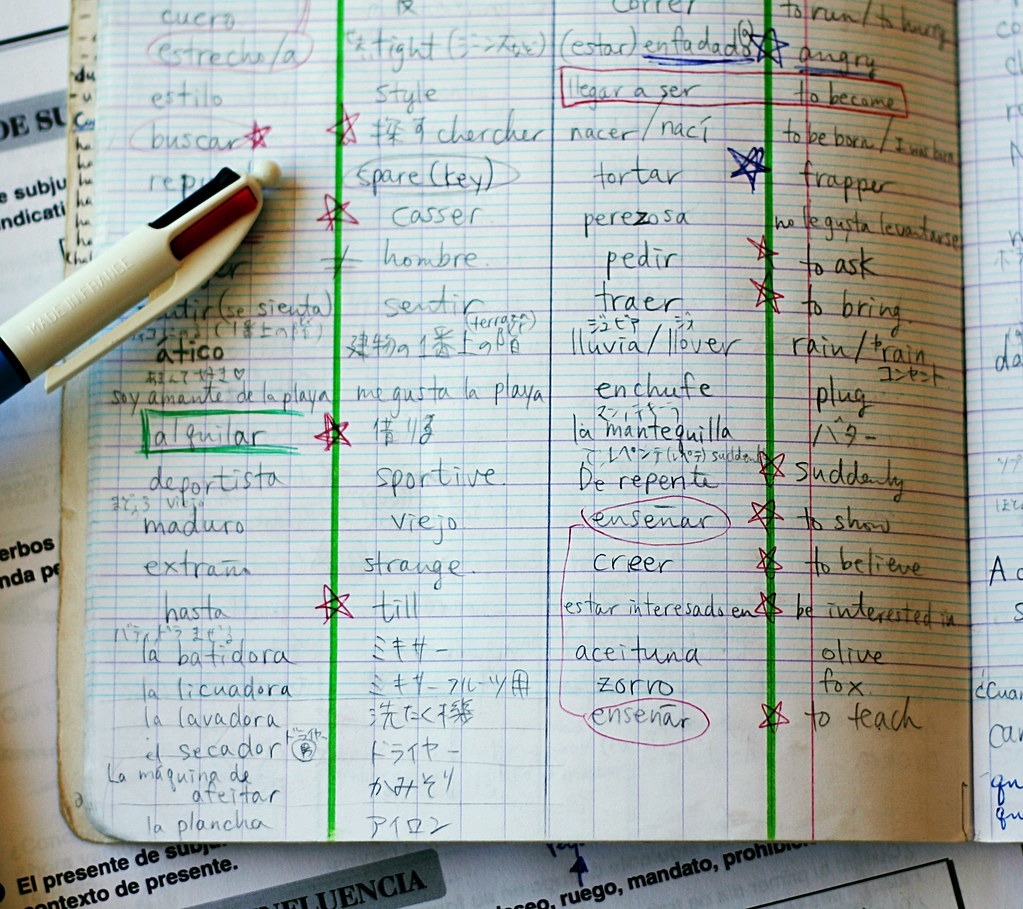 cuero 皮 correr to run/to hurry
estrecho/a tight (ジーンズなど) (estar) enfadado angry
estilo style llegar a ser to become
buscar 探す chercher nacer/nací to be born/I was born
spare (key) tortar frapper
casser perezosa no le gusta levantarse
≠ hombre. pedir to ask
(se sienta) sentir traer to bring
ático 建物の1番上の階 (terraza) lluvia/llover rain/to rain
soy amante de la playa me gusta la playa enchufe plug コンセント
alquilar 借りる la mantequilla バター
deportista sportive De repente suddenly
maduro viejo enseñar to show
extraña strange. creer to believe
hasta till estar interesado en be interested in
la batidora ミキサー aceituna olive
la licuadora ミキサーフルーツ用 zorro fox.
la lavadora 洗たく機 enseñar to teach
el secador ドライヤー 男 ドライヤー
La máquina de afeitar かみそり
la plancha アイロン
MADE IN FRANCE
DE SU
e subju
indicati
erbos
nda pe
El presente de subju
contexto de presente.
NFLUENCIA
deseo, ruego, mandato, prohibi
¿Cuan